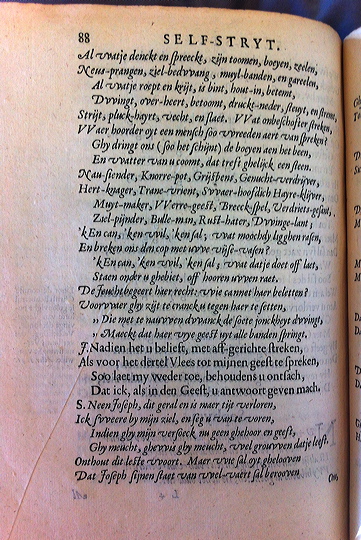 88 SELF-STRYT.
Al vvatje denckt en spreeckt, zijn toomen, boeyen, zeelen,
Neus-prangen, ziel-bedvvang, muyl-banden, en gareelen,
Al vvatje roept en krijt, is bint, hout-in, betemt,
Dvvingt, over-heert, betoomt, druckt-neder, stuyt, en stremt,
Strijt, pluck-hayrt, vecht, en slaet. VVat onbeschofter streken,
VVaer hoorder oyt een mensch soo vvreeden aert van spreken?
Ghy dringt ons (soo het schijnt) de boeyen aen het been,
En vvatter van u coomt, dat tref ghelijck een steen.
Nau-siender, Knorre-pot, Grijspens, Genucht-verdrijver,
Hert-knager, Trane-vrient, Svvaer-hoofdich Hayre-klijver,
Muyt-maker, VVerre-geest, Breeck-spel, Verdriets-gesint,
Ziel-pijnder, Bulle-man, Rust-hater, Dvvinge-lant;
'k En can, 'ken vvil, 'ken sal; vvat moochdy ligghen rasen,
En breken ons den cop met uvve vijse-vasen?
'k En can, 'ken vvil, 'ken sal; vvat datje doet off laet,
Staen onder u ghebiet, off hooren uvven raet.
De Jeuchtbegeert haer recht: vvie cannet haer beletten?
Voorvvaer ghy zijt te cranck u tegen haer te setten,
„ Die met te nauvven dvvanck de soete jonckheyt dvvingt,
„ Maeckt dat haer vrye geest uyt alle banden springt.
J. Nadien het u belieft, met aff-gerichte streken,
Als voor het dertel Vlees tot mijnen geest te spreken,
Soo laet my weder toe, behoudens u ontsach,
Dat ick, als in den Geest, u antwoort geven mach.
S. Neen Joseph, dit geral en is maer tijt verloren,
Ick svveere by mijn ziel, en seg u van te voren,
Indien ghy mijn versoeck nu geen ghehoor en geeft,
Ghy meucht, ghevvis ghy meucht, vvel grouvven datje leeft.
Onthout dit leste vvoort. Maer vvie sal oyt ghelooven
Dat Joseph sijnen staet van vvel-vaert sal berooven